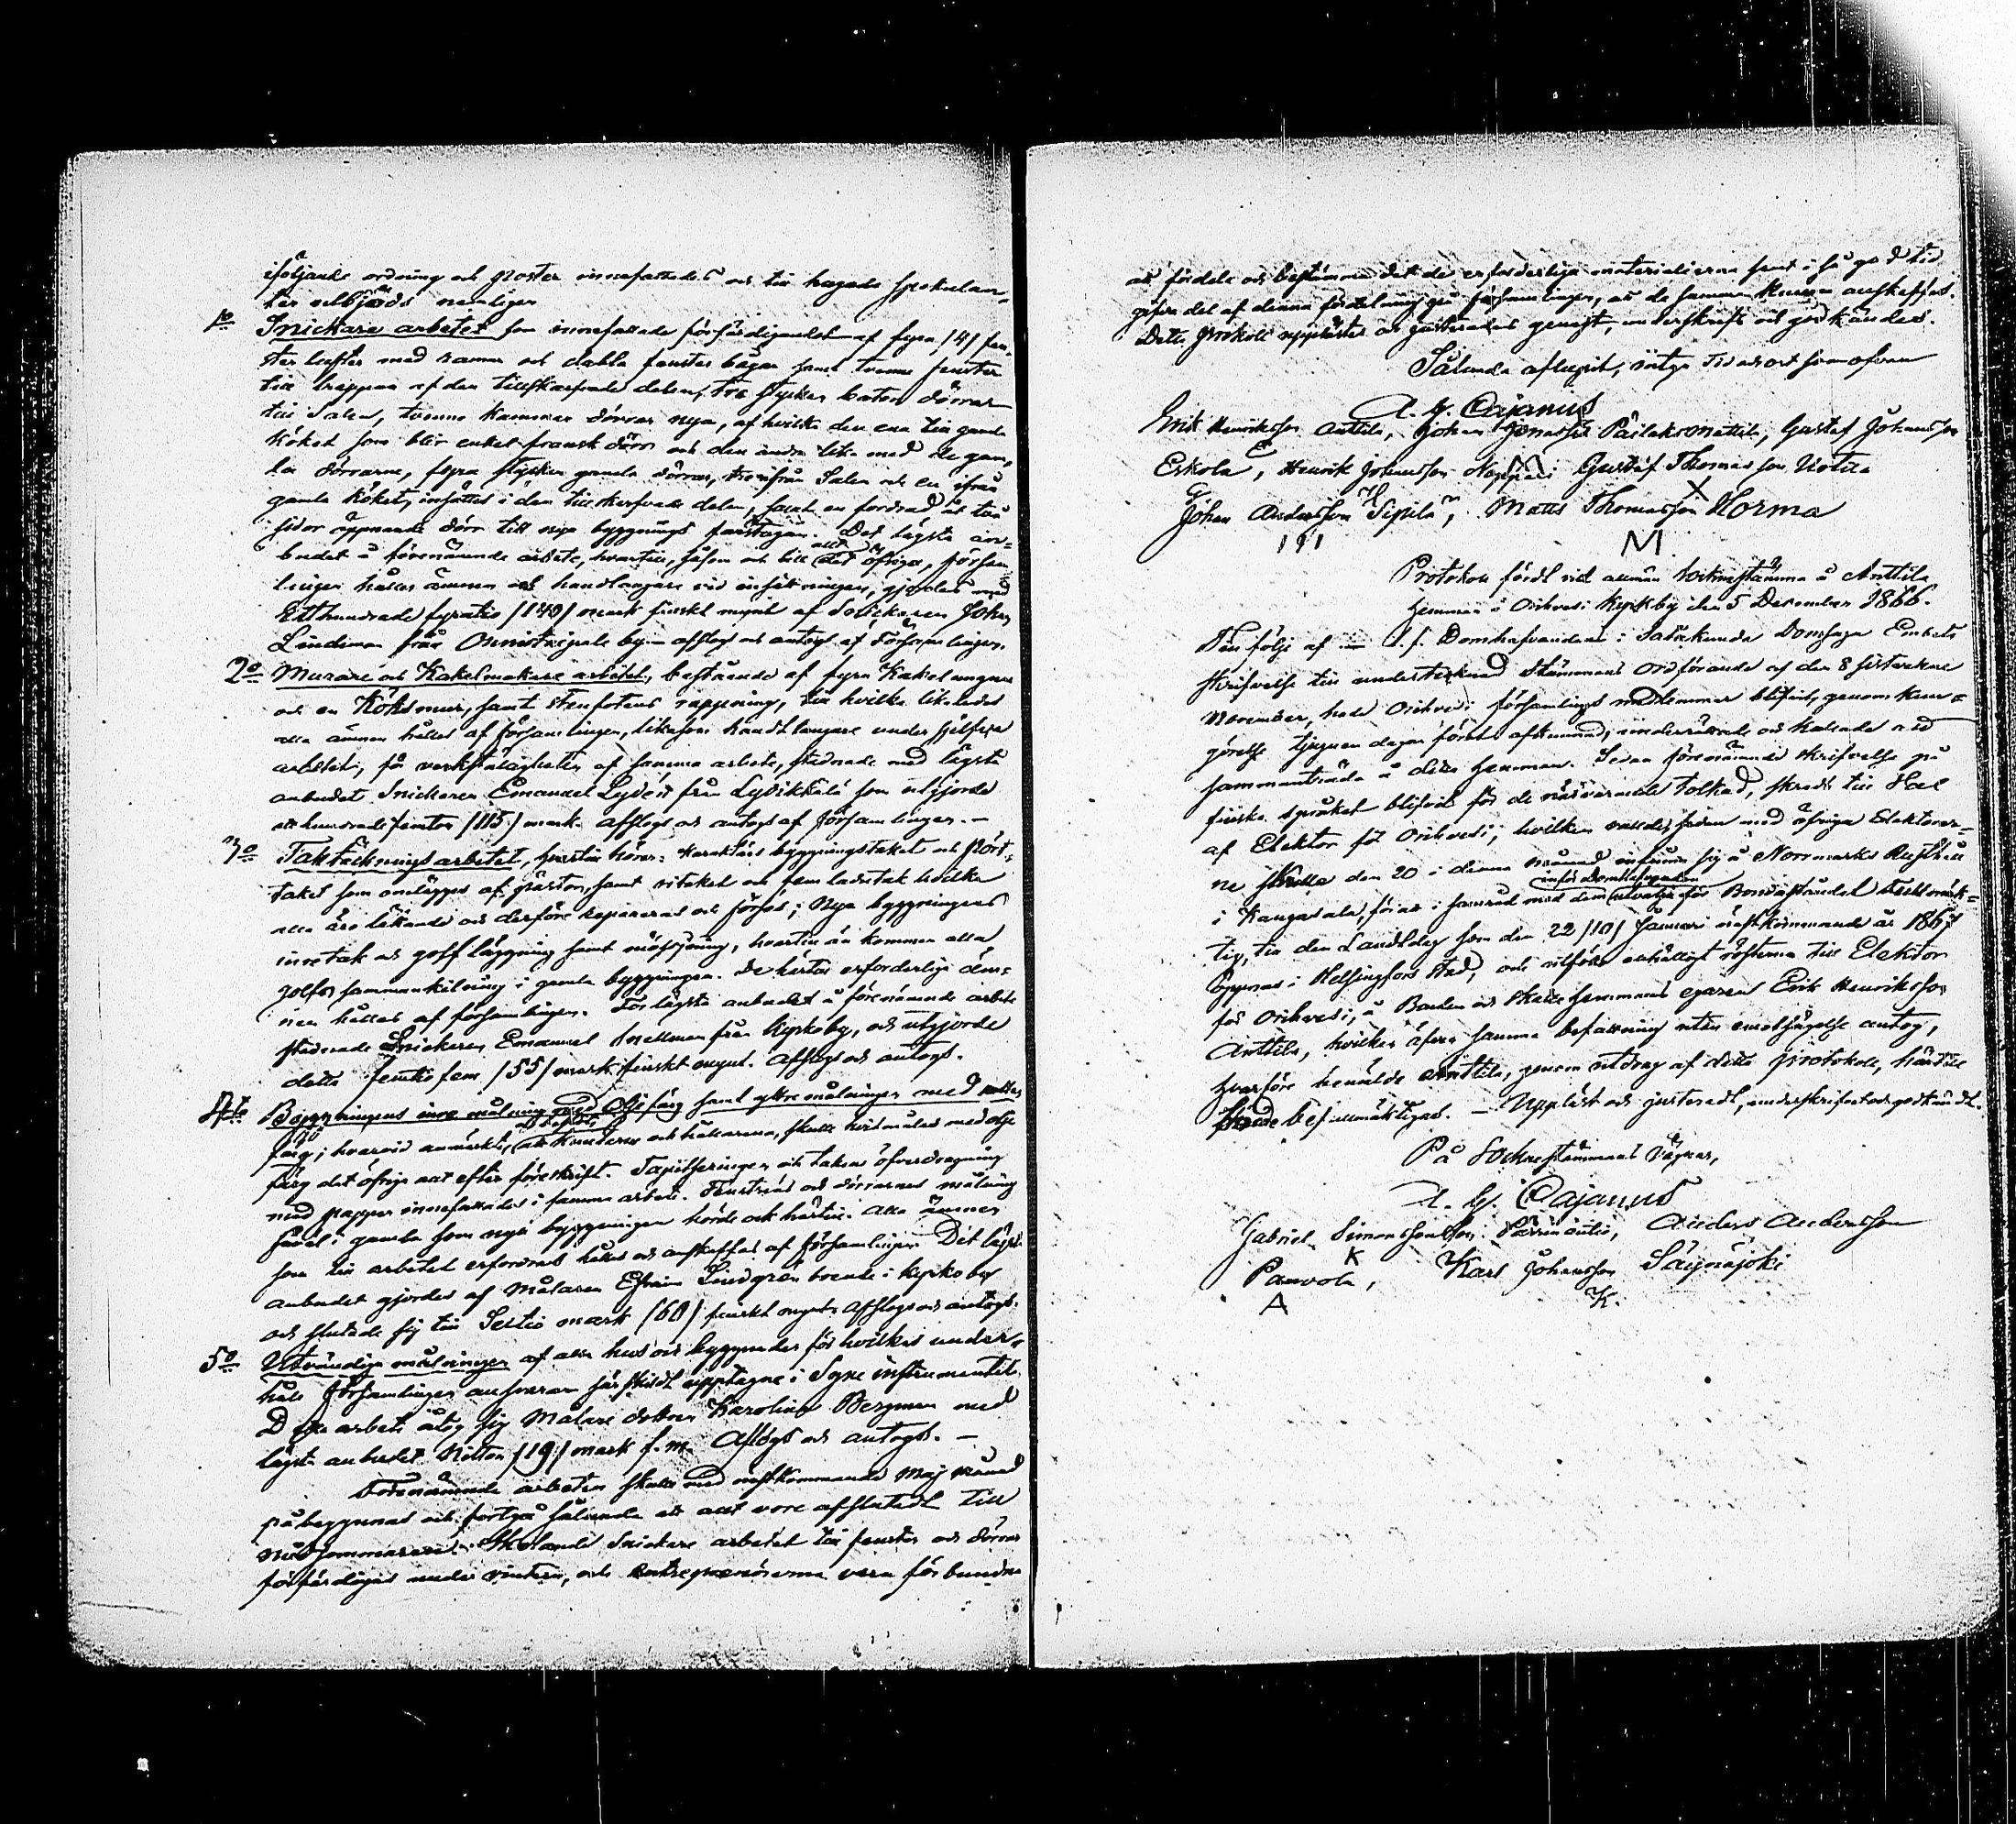 iföljande ordning och poster innefattades och till hugade spekulan-
ter utbjöds nemligen
1o Snickare arbetet som innefattade förfärdigandet af fyra /4/ fen-
ster lufter med ramar och dubla fenster bågar samt tvenne fenster
till trappan af den tillskarfvade delen, två stycken dörrar
till Salen, tvenne Kammar dörrar nya, af hvilka den ena till gamla
Köket som blir enkel fransk dörr och den andra lika med de gam-
la dörrarne, fyra stycken gamla dörrar, tre ifrån Salen och en ifrån
gamla Köket, insättes i den tillskarfvade delen, samt en fordrad åt två
sidor öppnande dörr till nya byggnings farstugan. Det lägsta an-
budet å förenämnde arbete, hvartill, såsom och till allt det öfriga, församl
lingen håller ämnen och handlangare vid insättningen, gjordes med
Etthundrade fyratio /140/ mark finskt mynt af Snickaren Johan
Lindeman från Onnistaipale by – afslogs och antogs af Församlingen.
2o Murare och Kakelmakare arbetet, bestående af fyra Kakelugnar
och en Köksmur, samt Stenfotens rappning, till hvilka likaledes
alla ämnen hålles af församlingen, likasom handtlangare under sjelfva
arbetet, för verkställigheten af samma arbete, stadnade med lägsta
anbudet Snickaren Emanuel Lydén från Lyltikkälä som utgjorde
ett hundrade femton /115/ mark. Afslogs och antogs af församlingen. –
3o Taktäckningsarbetet, hvartill hörer: Karaktärs byggningstaket och Pört-
taket som omlägges af pärtor, samt ritaket och fem ladutak hvilka
alla äro läkande och derföre repareras och förses; Nya byggningens
inretak och golfläggning samt mössning, hvartill än kommer alla
golfvs sammankilning i gamla byggningen. De härtill erforderliga äm-
nen hålles af församlingen. För lägsta anbudet å förenämnde arbete
stadnade Snickaren Emanuel Snellman från Kyrkoby, och utgjorde
detta femtio fem /55/ mark finskt mynt. Afslogs och antogs.
4to Byggningens inre målning med Oljefärg samt yttre målningen med
färg; hvarvid anmärktes, att Knutarne och hällarena, skulle hvitmålas med olje
färg det öfriga allt efter föreskrift. Tapitseringen och takens öfverdragning
med papper innefattades i samma arbete. Fenstrens och dörrarnes målning
såväl i gamla som nya byggningen hörde och härtill. Alla ämnen
som till arbetet erfordras hålles och anskaffas af församlingen. Det lägst
anbudet gjordes af Målaren Efraim Lindgren boende i Kyrkoby
och slutade sig till Sextio mark /60/ finskt mynt. Afslogs och antogs.
5o Utvändiga målningen af alla hus och byggnader för hvilkas under-
håll församlingen ansvarar särskildt upptagne i Syne instrumentet.
Detta arbete åtog sig Målare dottren Karolina Bergman med
lägsta anbudet Nitton /19/ mark f.m. Afslogs och antogs. –
Förenämnde arbeten skulle med nästkommande Maj månad
påbegynnas och fortgå sålunda att allt vore afslutadt till
midsommaren. Skolande Snickare arbetet till fenster och dörrar
förfärdigas under vintern, och entreprenörerna vara förbundna
att fördela och bestämma det de erforderliga materialierna samt i så god tid
gifva del af denna fördelning åt församlingen, att de samma kunna anskaffas.
Detta protokoll upplästes och justerades genast, underskrefs och godkändes.
Sålunda aflupit, intyga Tid och ort som ofvan
A. G. Cajanus
Erik Henriksson Anttila, Johan Jonasson Päiläksmattila, Gustaf Johansson
Eskola, Henrik Johansson Neppari Gustaf Thomasson Uotila
Johan Andersson Sipilä, Matts Thomasson Horma
M
Protokoll fördt vid allmän Sockenstämma å Anttila
hemman i Orihvesi Kyrkby den 5 December 1866.
Till följe af t. f. Domhafvandens i Satakunda Domsaga Embets
skrifvelse till undertecknad Stämmans Ordförande af den 8 sistvekne
November, hade Orihvesi församlings medlemmar blifvit, genom kun-
görelse tjugun dagar förut afkunnad, underrättade och kallade att
sammanträda å detta hemman. Sedan förenämnde skrifvelse på
finska språket blifvit för de närvarande tolkad, skreds till Val
af Elektor för Orihvesi, hvilken valdes sedan med öfriga Elektorer-
ne skulle den 20 i denna månad infinna sig å Norrmarks Rusthåll
i Kangasala, för att i samråd med dem inför Domhafvanden utvälja för Bondeståndet fullmäk-
tig, till den Landtdag som den 22 /10/ Januari nästkommande år 1867
öppnas i Helsingfors stad, och utföllo enhälligt rösterna till Elektor
för Orihvesi, å Bonden och Skatte hemmans egaren Erik Henriksson
Anttila, hvilken äfven samma befattning utan emotsägelse antog,
hvarföre bemälde Anttila, genom utdrag af detta protokoll, härtill
skulle befullmäktigas. – Uppläst och justeradt, underskrifvet och godkändt.
På Sockenstämmans Vägnar,
A. G. Cajanus
Gabriel Simonsson Anders Andersson
K
Panvola, Karl Johansson Säynäjoki
A K.